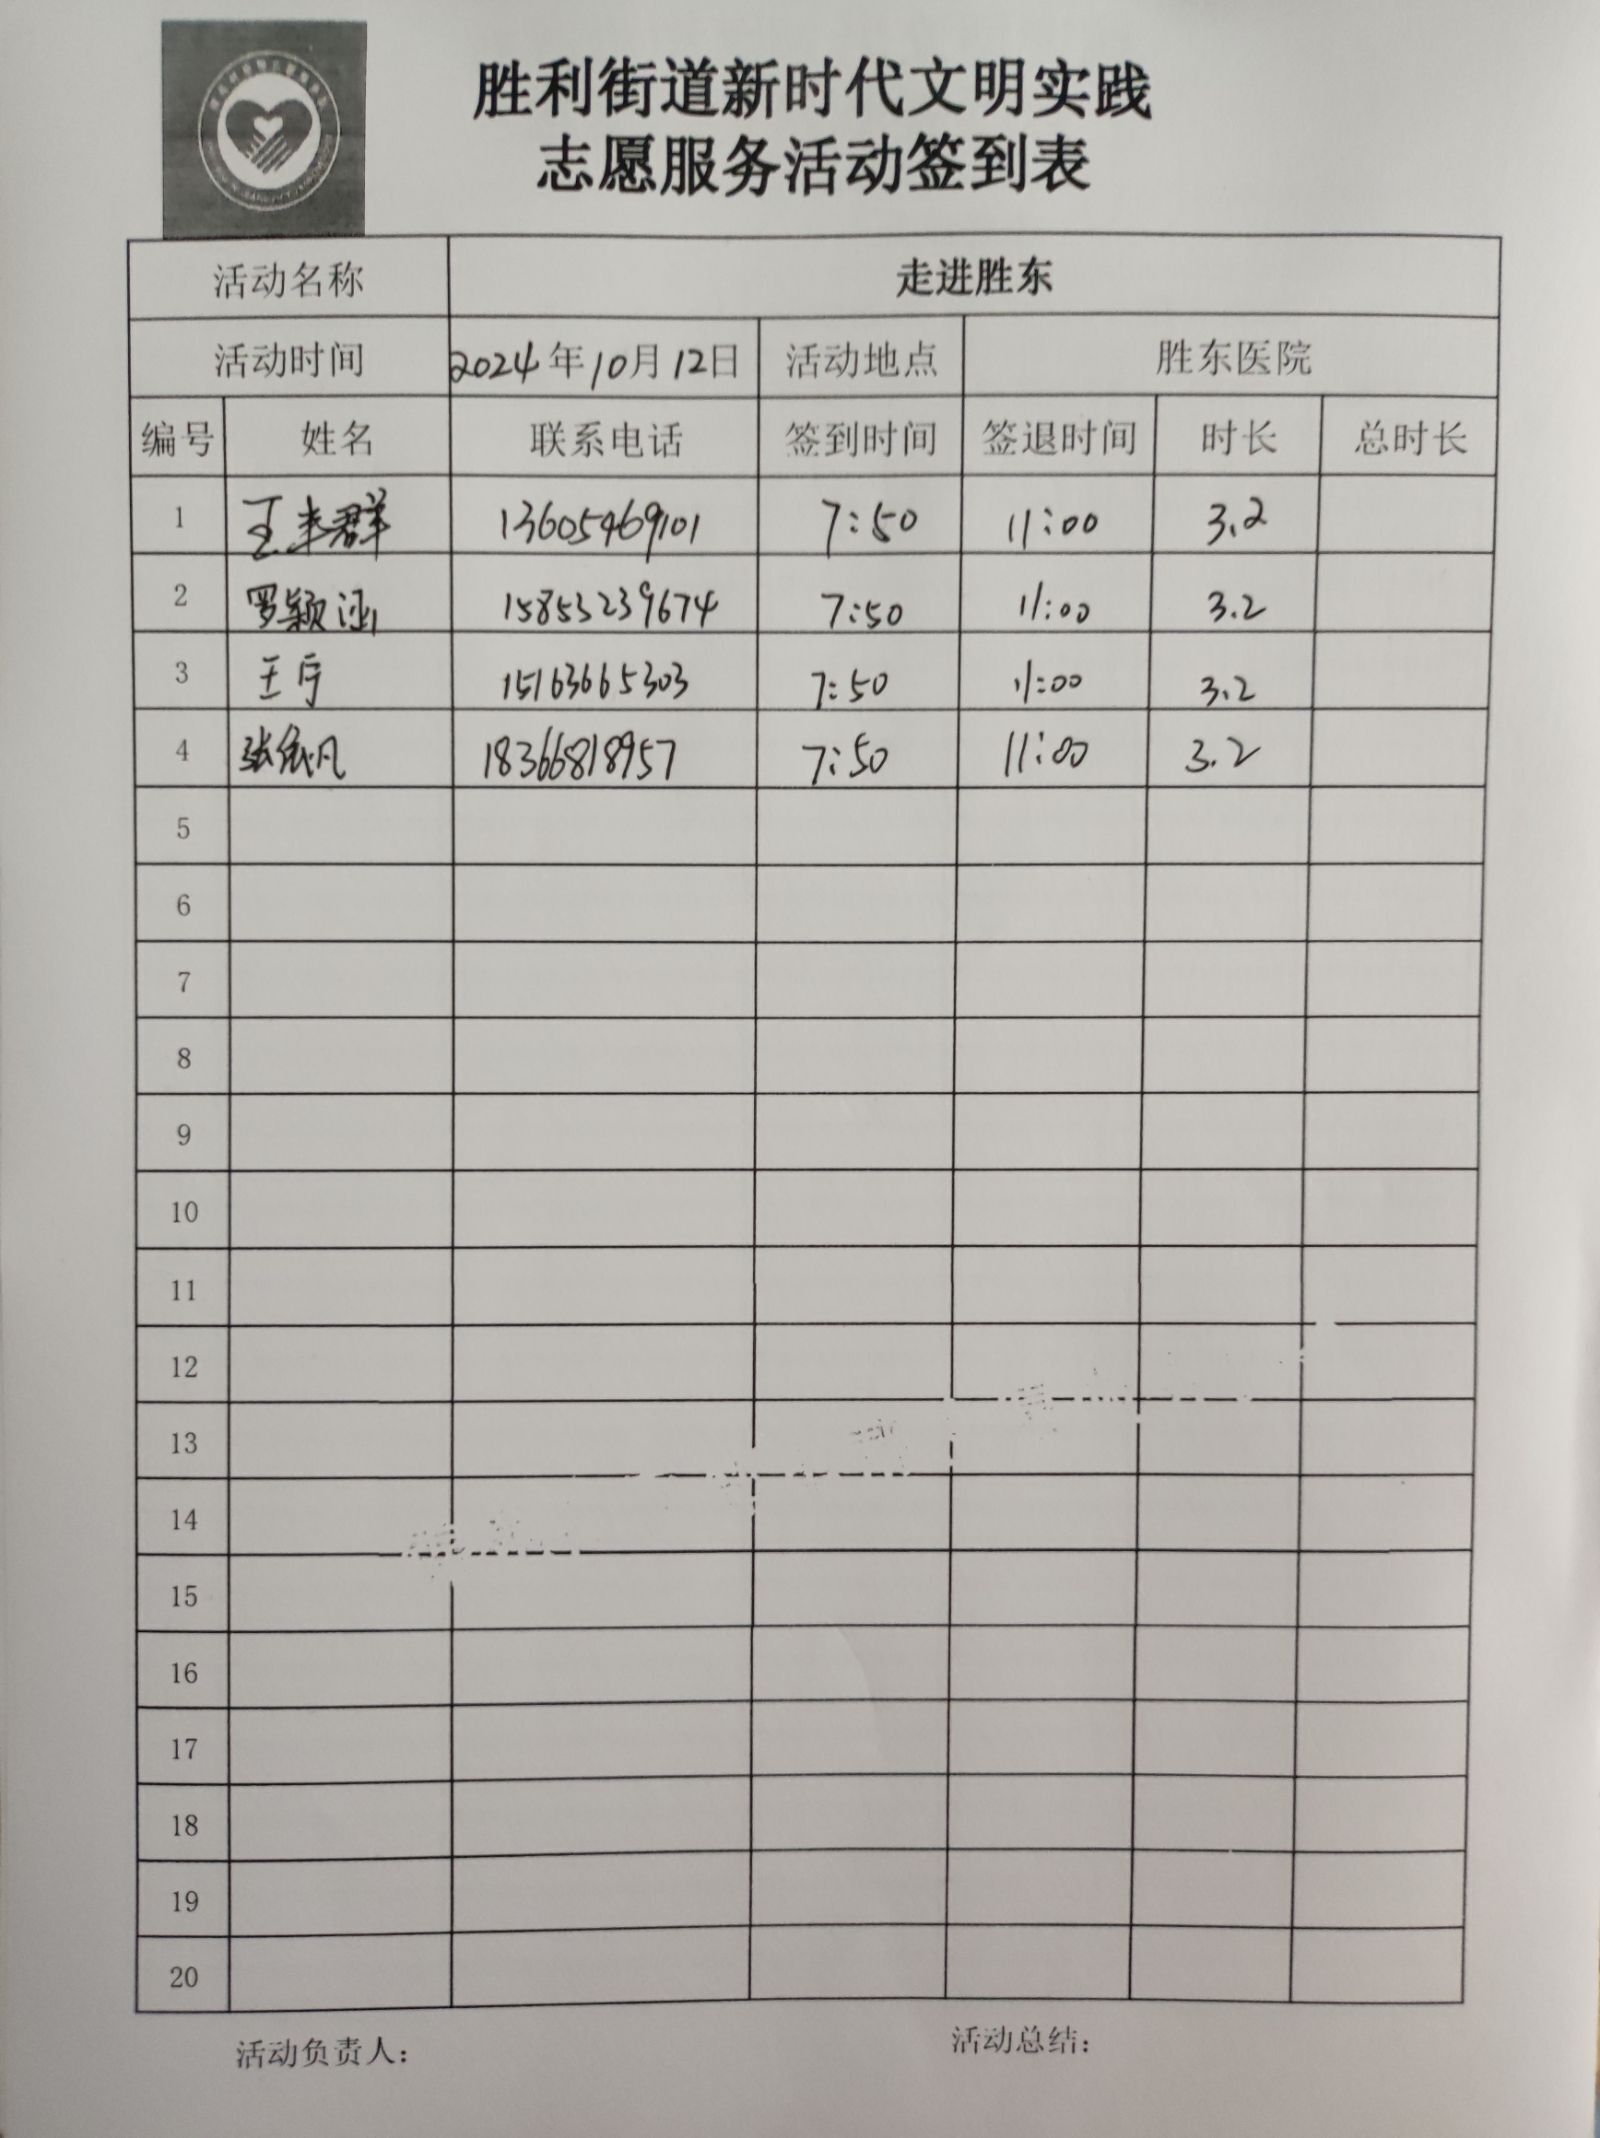 胜利街道新时代文明实践
志愿服务活动签到表
活动名称 走进胜东
活动时间 2024年10月12日 活动地点 胜东医院
编号 姓名 联系电话 签到时间 签退时间 时长 总时长
1 王丰群 13605469101 7:50 11:00 3.2
2 罗颖涵 15853239674 7:50 11:00 3.2
3 王宁 15163665303 7:50 11:00 3.2
4 张依凡 18366818957 7:50 11:00 3.2
5
6
7
8
9
10
11
12
13
14
15
16
17
18
19
20
活动负责人： 活动总结：